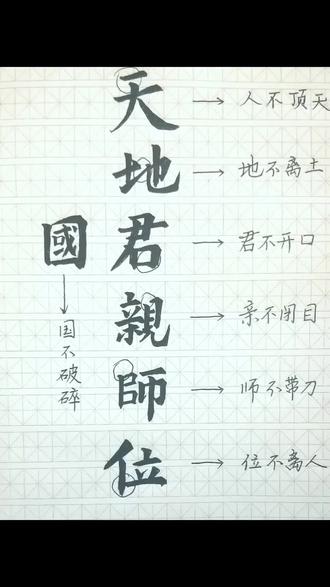 天 → 人不顶天
地 → 地不离土
君 → 君不开口
親 → 亲不闭目
師 → 师不带刀
位 → 位不离人
國
国不破碎